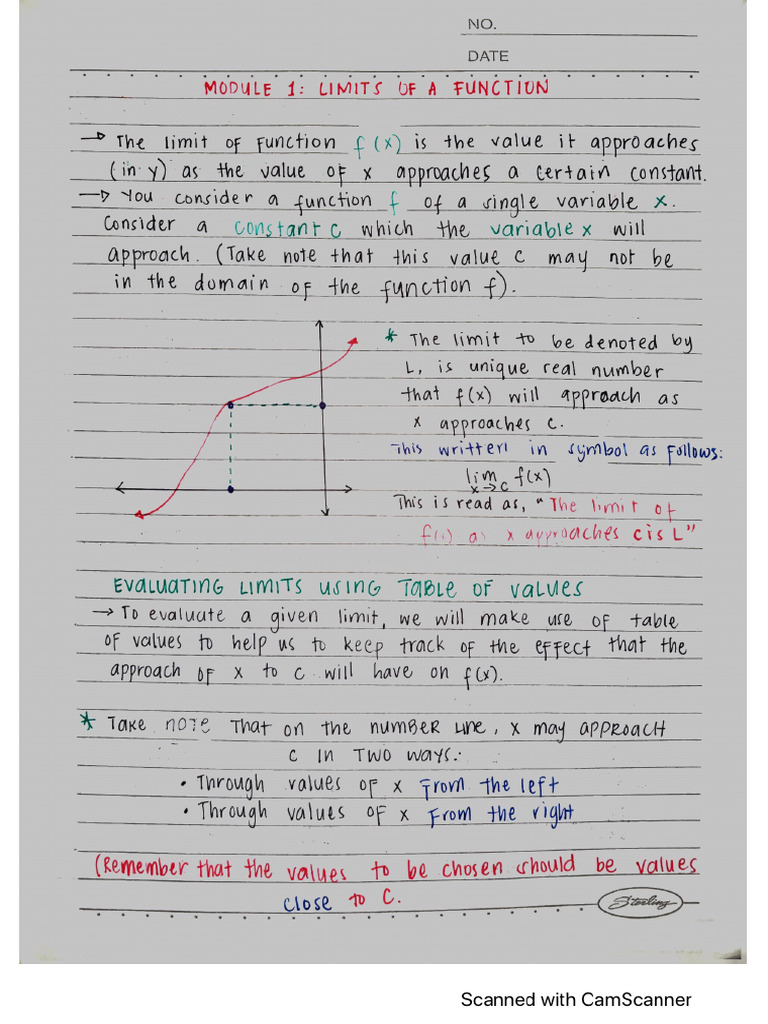 NO.
DATE
MODULE 1: LIMITS OF A FUNCTION
→ The limit of Function f(x) is the value it approaches
(in y) as the value of x approaches a certain constant.
→ You consider a function f of a single variable x.
Consider a constant c which the variable x will
approach. (Take note that this value c may not be
in the domain of the function f).
* The limit to be denoted by
L, is unique real number
that f(x) will approach as
x approaches c.
This written in symbol as follows:
lim f(x)
x→c
This is read as, "The limit of
f(x) as x approaches c is L"
EVALUATING LIMITS USING TABLE OF VALUES
→ To evaluate a given limit, we will make use of table
of values to help us to keep track of the effect that the
approach of x to c will have on f(x).
* Take NOTE That on the number line, x may approach
c in two ways:
• Through values of x From the left
• Through values of x From the right
(Remember that the values to be chosen should be values
close to c.
Sterling
Scanned with CamScanner